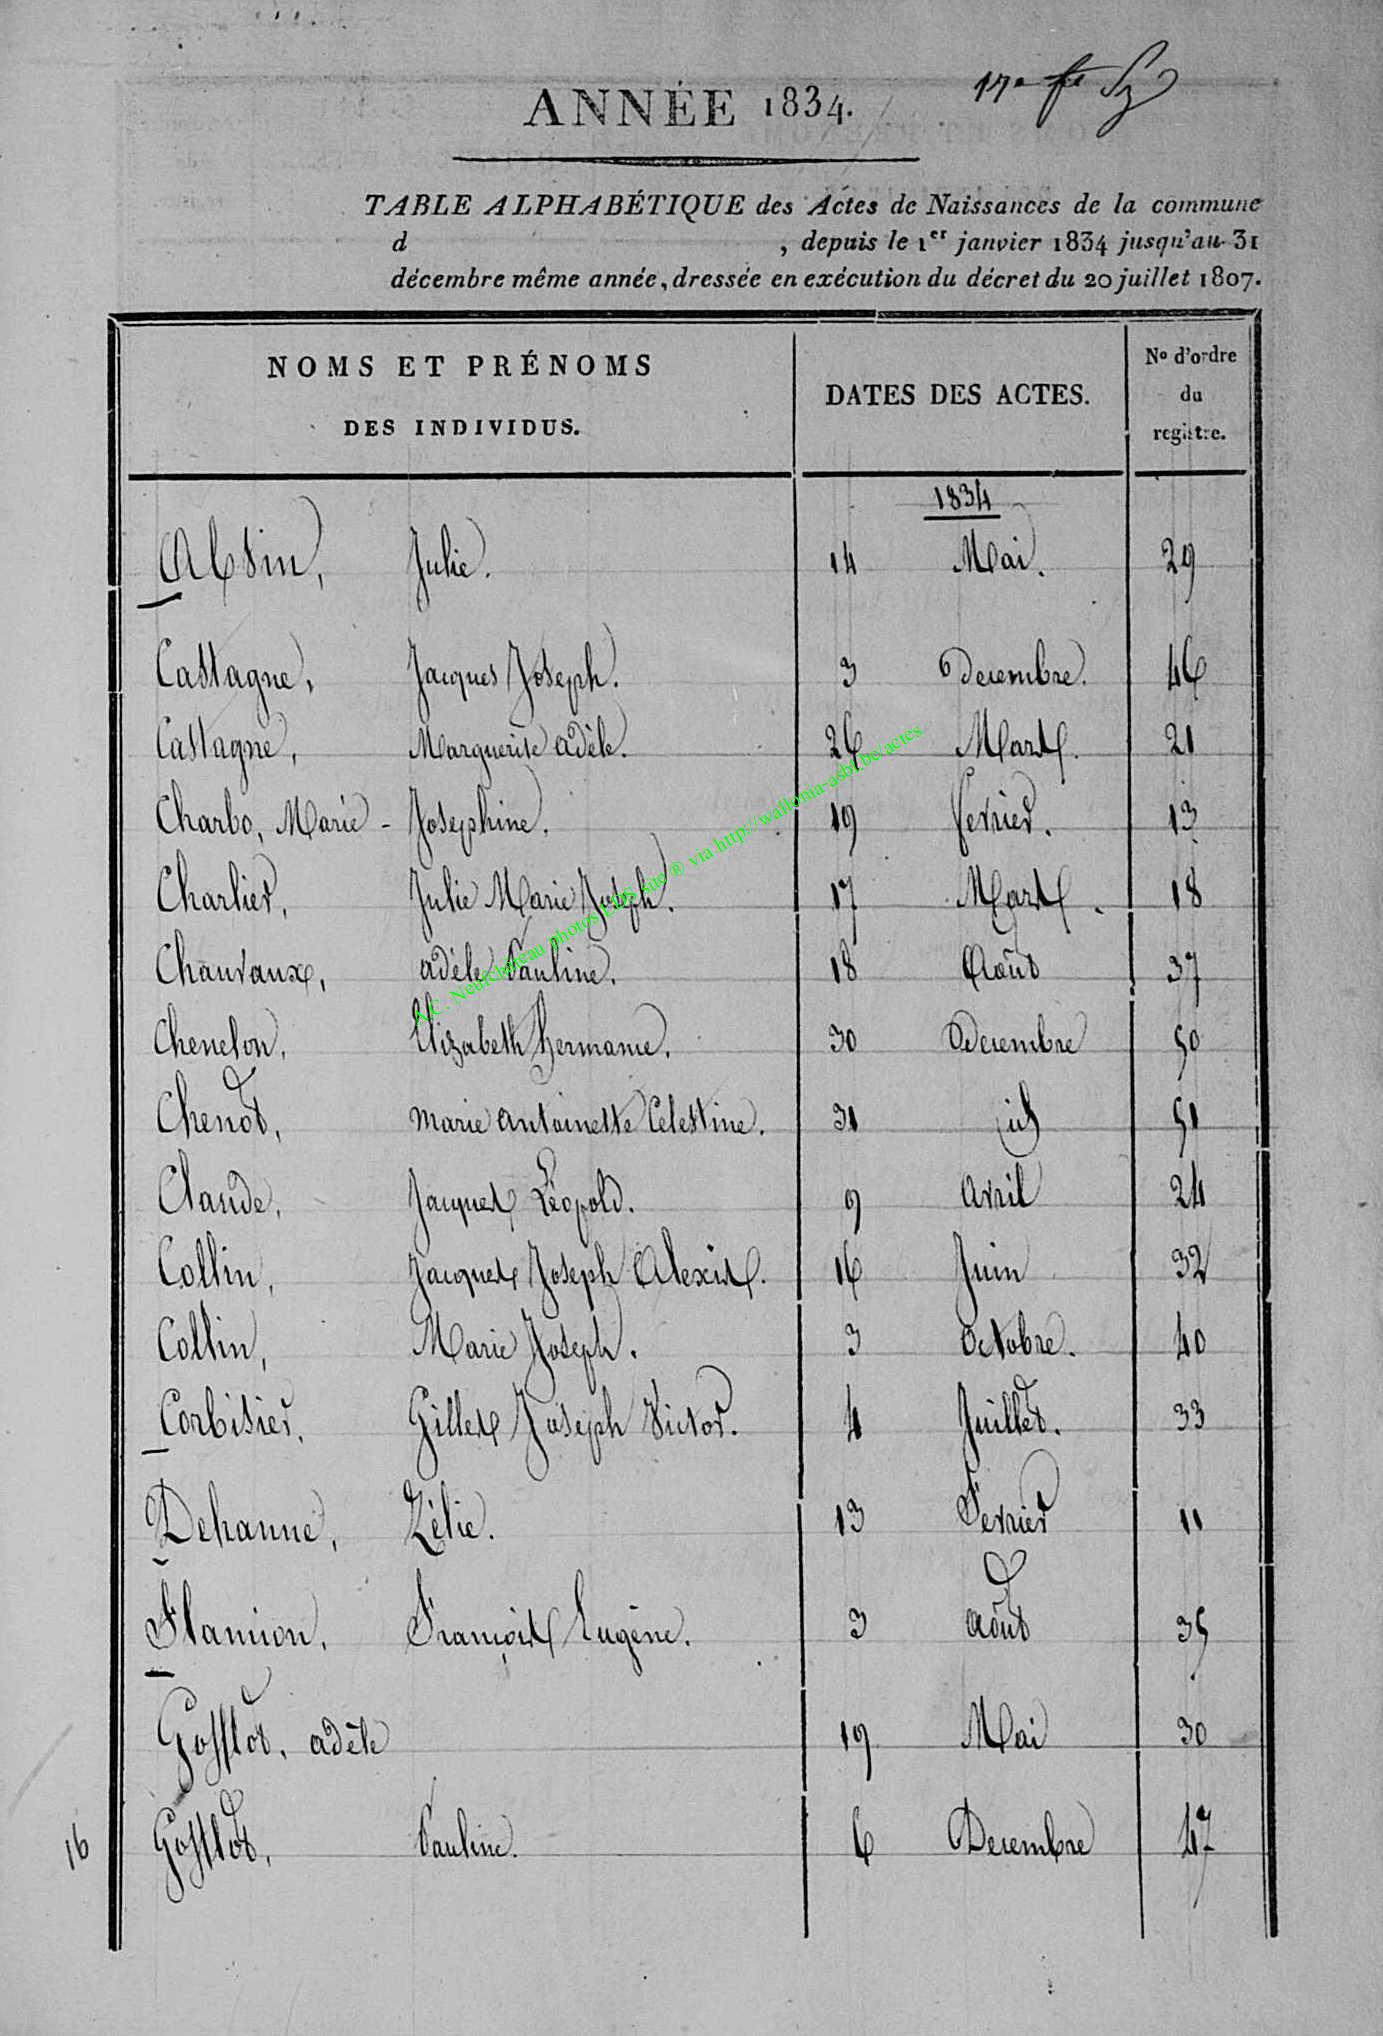 17e fe
ANNÉE 1834.
TABLE ALPHABÉTIQUE des Actes de Naissances de la commune
d , depuis le 1er janvier 1834 jusqu'au 31
décembre même année, dressée en exécution du décret du 20 juillet 1807.
NOMS ET PRÉNOMS DES INDIVIDUS. DATES DES ACTES. No d'ordre du registre.
1834
Alsin, Julie. 14 Mai. 29
Castagne, Jacques Joseph. 3 Decembre. 46
Castagne, Marguerite adèle. 26 Mars. 21
Charbo, Marie - Josephine. 19 fevrier. 13
Charlier, Julie Marie Joseph. 17 Mars. 18
Chauvaux, adèle Pauline. 18 Août 37
Chenelon, Elizabeth hermanie. 30 Decembre 50
Chenot, marie antoinette Celestine. 31 id 51
Claude, Jacques Léopold. 9 avril 24
Collin, Jacques Joseph Alexis. 16 Juin 32
Collin, Marie Joseph. 3 octobre. 40
Corbisier, Gilles Joseph Victor. 4 Juillet. 33
Dehanne, Zélie. 13 Fevrier 11
Flamion, François Eugène. 3 août 35
Gosslot, adèle 19 Mai 30
16 Gosslot, Pauline. 6 Decembre 47
A.C. Neufchâteau photos LDS sue ® via http://wallonia-asbl.be/actes